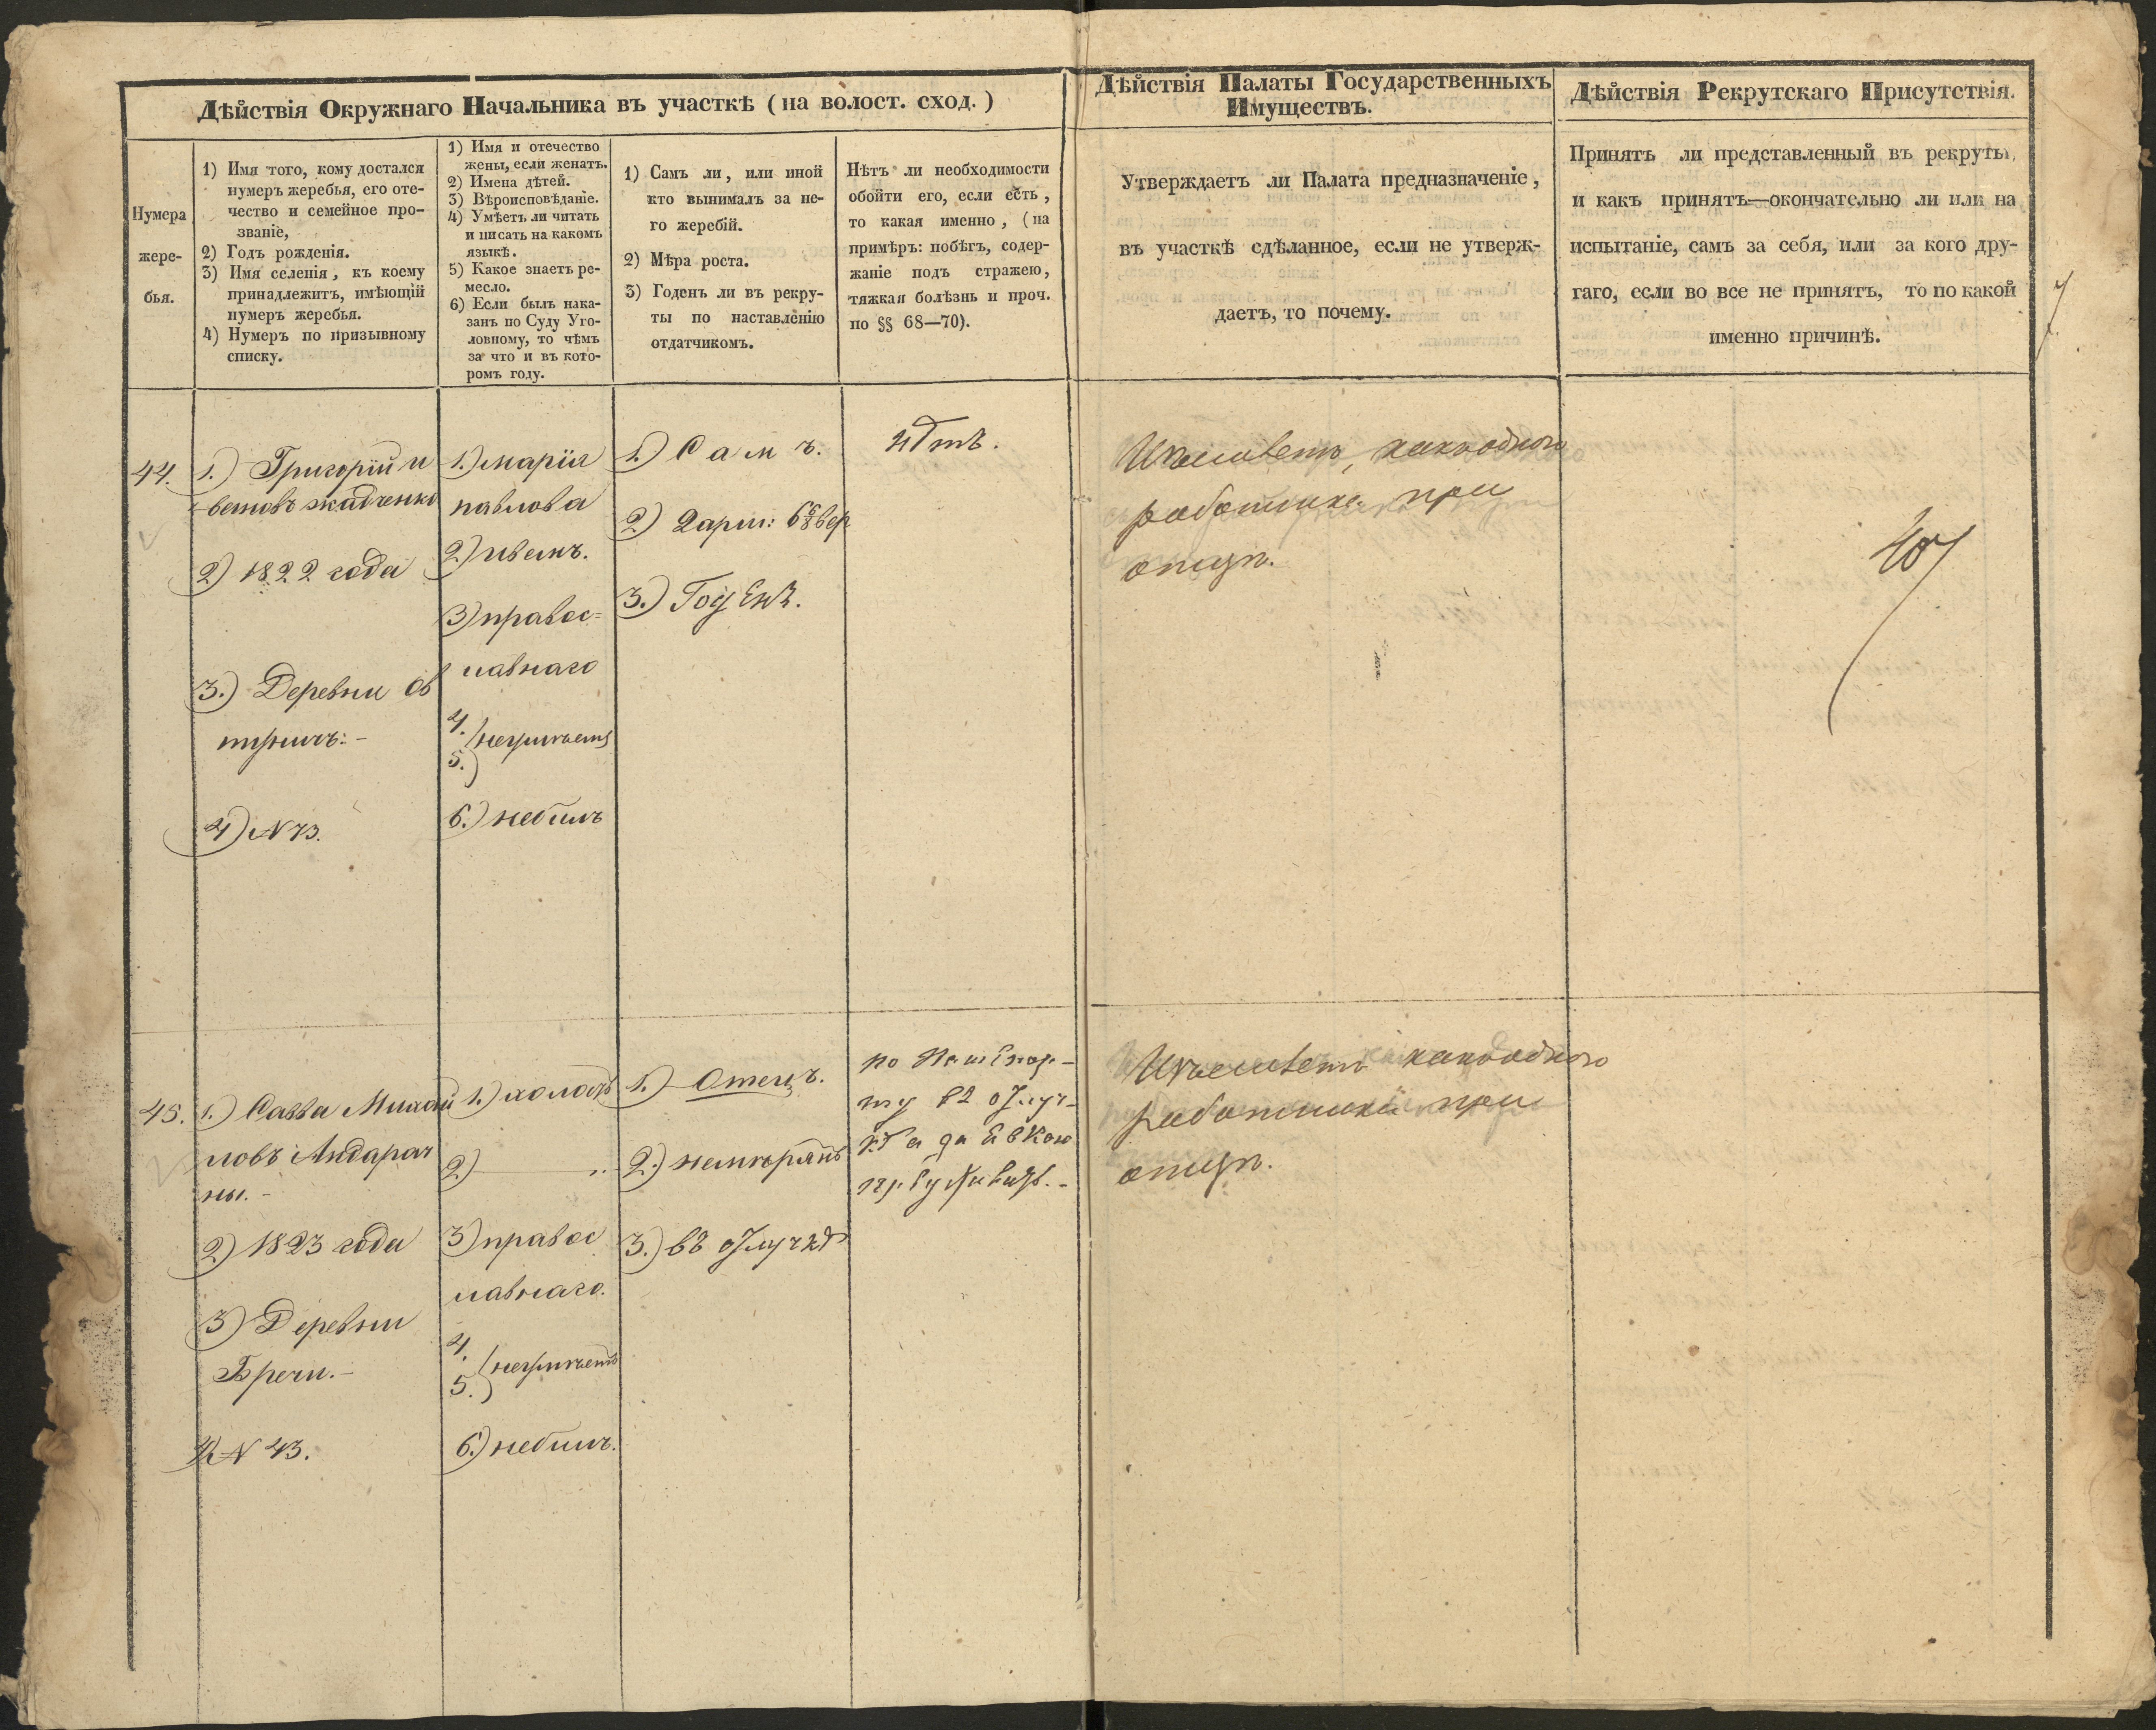 Дѣйствія Окружнаго Начальника въ участкѣ (на волост. сход.)
Дѣйствія Палаты Государственныхъ
Имуществъ.
Дѣйствія Рекрутскаго Присутствія.
Нумера
жере-
бья.
1) Имя того, кому достался
нумеръ жеребья, его оте-
чество и семейное про-
званіе,
2) Годъ рожденія.
3) Имя селенія, къ коему
принадлежитъ, имѣющій
нумеръ жеребья.
4) Нумеръ по призывному
списку.
1) Имя и отечество
жены, если женатъ.
2) Имена дѣтей.
3) Вѣроисповѣданіе.
4) Умѣетъ ли читать
и писать на какомъ
языкѣ.
5) Какое знаетъ ре-
месло.
6) Если былъ нака-
занъ по Суду Уго-
ловному, то чѣмъ
за что и въ кото-
ромъ году.
1) Самъ ли, или иной
кто вынималъ за не-
го жеребій.
2) Мѣра роста.
3) Годенъ ли въ рекру-
ты по наставленію
отдатчикомъ.
Нѣтъ ли необходимости
обойти его, если есть,
то какая именно, (на
примѣръ: побѣгъ, содер-
жаніе подъ стражею,
тяжкая болѣзнь и проч.
по §§ 68—70).
Утверждаетъ ли Палата предназначеніе,
въ участкѣ сдѣланное, если не утверж-
даетъ, то почему.
Принятъ ли представленный въ рекруты,
и какъ принятъ—окончательно ли или на
испытаніе, самъ за себя, или за кого дру-
гаго, если во все не принятъ, то по какой
именно причинѣ.
44.
1.) Григорій и
вановъ жадченко
2) 1822 года
3.) Деревни
4) N 73.
1.) марія
павлова
2) иванъ.
3) правос=
лавнаго
4.
5.) неумѣетъ
6.) небылъ
1.) Самъ.
2) 2 арш: 6 6/8 вер
3.) Годенъ.
нѣтъ.
какъ одного
работника при
отцѣ.
45.
1.) Савва Михай
ловъ Андарач
ны.-
2) 1823 года
3) Деревни
Бречи.-
4) N 43.
1.) холостъ
2) — „
3) правос
лавнаго.
4.
5.) неумѣетъ
6.) небылъ.
1.) Отецъ.
2.) немѣрянъ
3.) въ отлучкѣ
по пашпор-
ту въ отлуч-
кѣ
какъ одного
работника при
отцѣ.